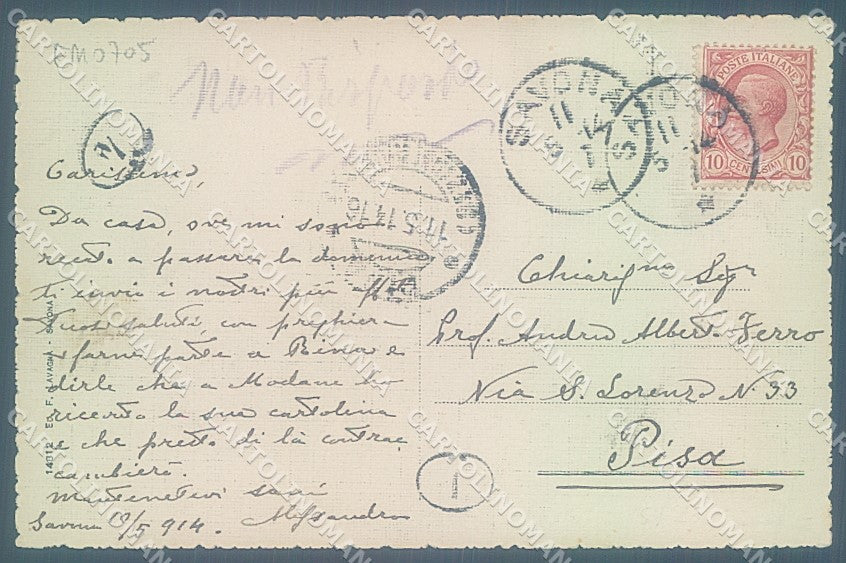 EM0705
Carissimo,
Da casa, ove mi sono
recato a passare la domenica
ti invio i nostri più aff.
tuosi saluti, con preghiera
farne parte a Bina e
dirle che a Modane ho
ricevuto la sua cartolina
e che presto di là contrac
cambierò.
Mantenetevi sani
Savona 10/5 914. Alessandro
14012 Ed. F. RAVAGNA - SAVONA
SAVONA
11.5.14
POSTE ITALIANE
10 CENTESIMI 10
Chiarigmo Sigr
Prof. Andrea Alberto Ferro
Via S. Lorenzo N. 33
Pisa
1
CARTOLINOMANIA